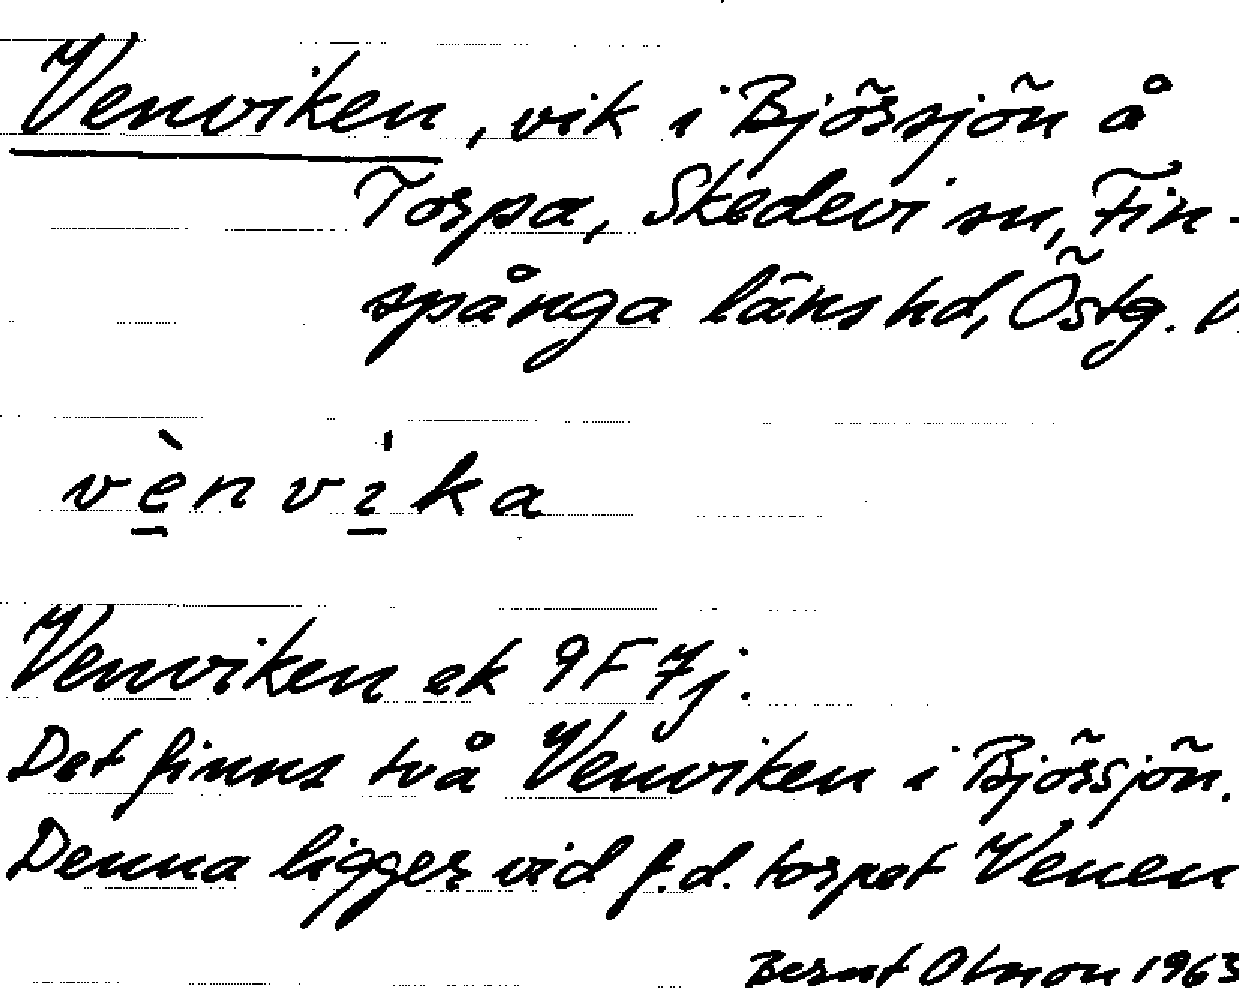 Venviken, vik i Björsjön å
Torpa, Skedevi sn, Fin-
spånga länshd, Östg.
vènvika
Venviken ek 9F 7j.
Det finns två Venviken i Björsjön.
Denna ligger vid f.d. torpet Venen
Bernt Olsson 1963